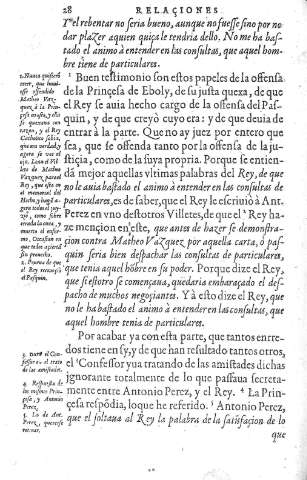 28 RELACIONES
Y el rebentar no seria bueno, aunque no fuesse sino por no
dar plazer aquien quiça le tendria dello. No me ha bas-
tado el animo à entender en las consultas, que aquel hom-
bre tiene de particulares.
Buen testimonio son estos papeles de la offensa
de la Prinçesa de Eboly, de su justa quexa, de que
el Rey se auia hecho cargo de la offensa del Pas-
quin, y de que creyò cuyo era: y de que deuia de
entrar à la parte. Que no ay juez por entero que
sea, que se offenda tanto por la offensa de la ju-
stiçia, como de la suya propria. Porque se entien-
dà mejor aquellas vltimas palabras del Rey, de que
no le auia bastado el animo à entender en las consultas de
particulares, es de saber, que el Rey le escriuiò à Ant.
Perez en vno destotros Villetes, de que el ² Rey ha-
ze mençion en este, que antes de hazer se demonstra-
cion contra Matheo Vazquez por aquella carta, ò pas-
quin seria bien despachar las consultas de particulares,
que tenia aquel hõbre en su poder. Porque dize el Rey,
que si estotro se començaua, quedaria embaraçado el des-
pacho de muchos negoçiantes. Y à esto dize el Rey, que
no le ha bastado el animo à entender en las consultas, que
aquel hombre tenia de particulares.
Por acabar ya con esta parte, que tantos entre-
dos tiene en sy, y de que han resultado tantos otros,
el ³ Confessor yua tratando de las amistades dichas
ignorante totalmente de lo que passaua secreta-
mente entre Antonio Perez, y el Rey. ⁴ La Prin-
çesa respõdia, lo que he referido. ⁵ Antonio Perez,
que el soltaua al Rey la palabra de la satisfaçion de lo
que
1. Nunca quisieron
offendido
Matheo Vaz-
quez, à la Prin-
y el Rey
Catholico sabia,
que era verdad, y
agora se vee al
ojo. Lean el Vil-
lete de Matheo
Vazquez para el
Rey, que esta en
el memorial del
Hecho y juzguen
2. Prueua de que
el Rey creya ser
el Pasquin.
3. el Con-
fessor en el trato
de las amistades.
4. Respuesta de
los mismos Prin-
çesa, y Antonio
Perez.
5. Lo de Ant.
Perez,